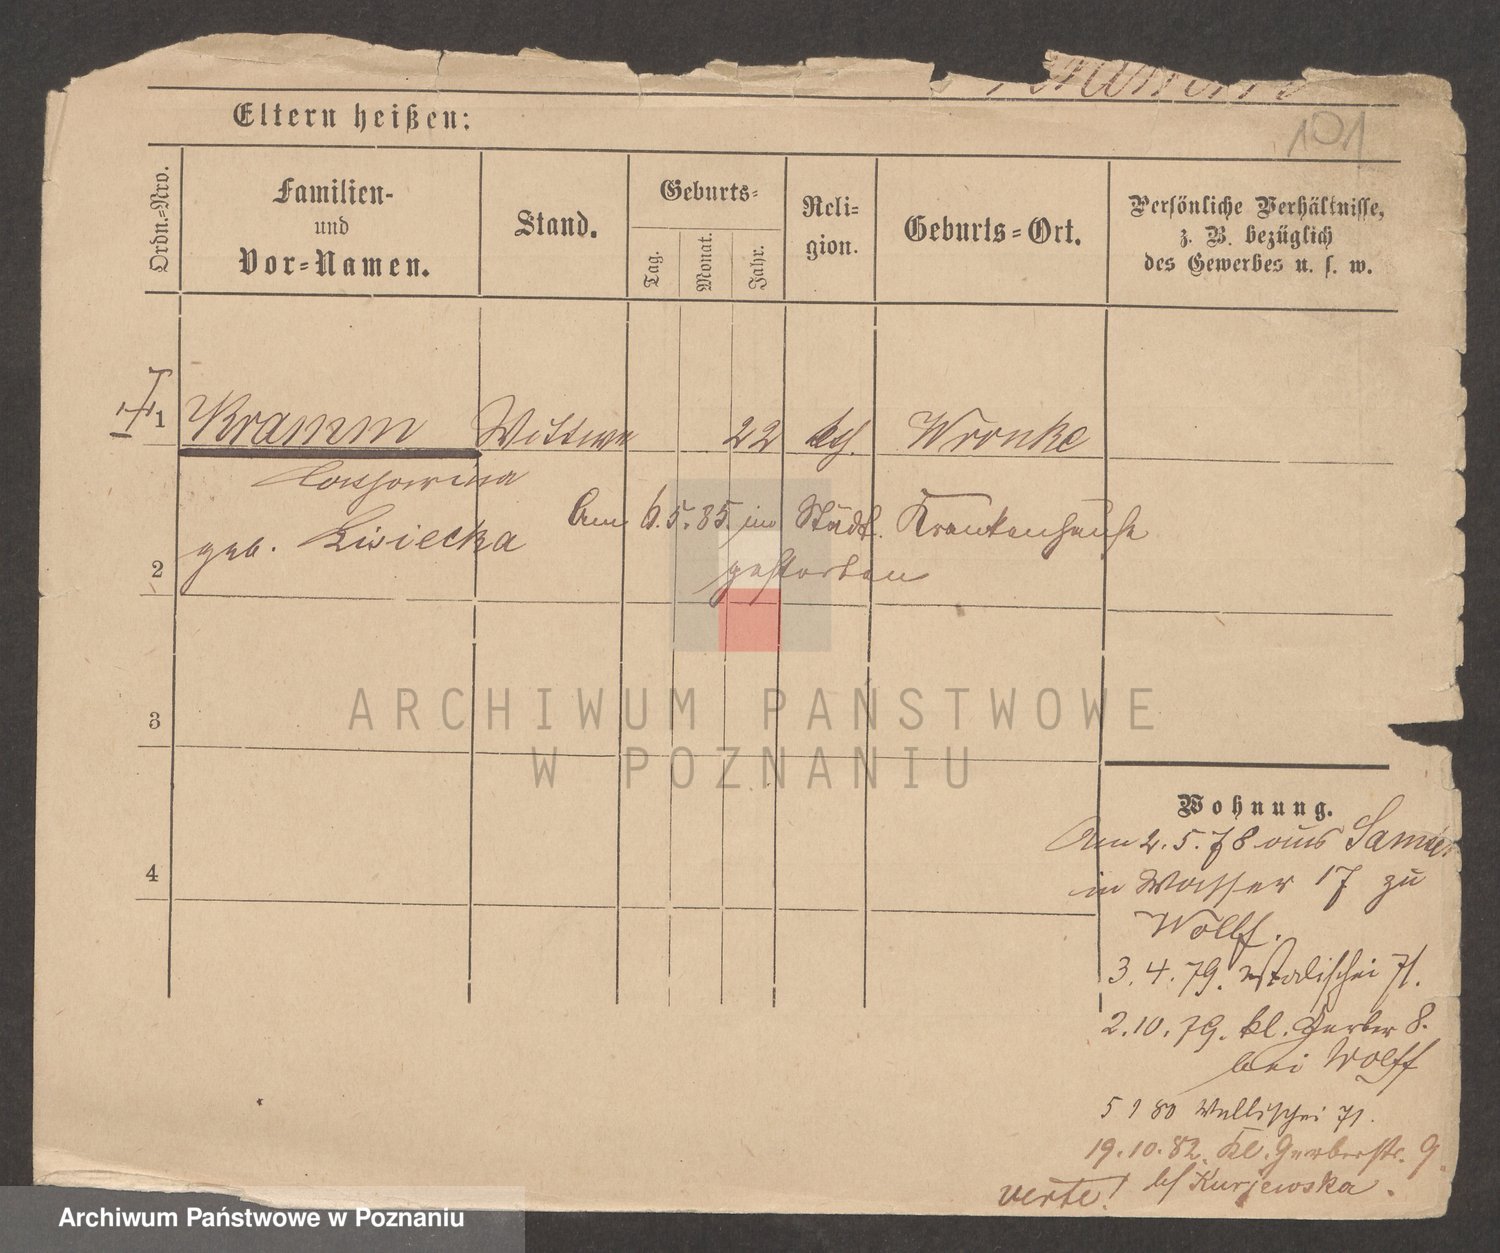 101
Eltern heißen:
Ordn.-Nro.
Familien-
und
Vor-Namen.
Stand.
Geburts-
Tag.
Monat.
Jahr.
Reli-
gion.
Geburts-Ort.
Persönliche Verhältnisse,
z. B. bezüglich
des Gewerbes u. s. w.
1 Kramm Wittwe 22 kth. Wronke
Catharina
geb. Lisiecka
Am 6.5.85. im Städt. Krankenhause
gestorben
2
3
ARCHIWUM PAŃSTWOWE
W POZNANIU
4
Wohnung.
Am 2.5.78 aus
in Wasser 17 zu
Wolff.
3.4.79. Wallischei 71.
2.10.79. kl. Gerber 8.
bei Wolff
5 1 80 Wallischei 71.
19.10.82. Kl. Gerberstr. 9.
verte! bf Kurjewska.
Archiwum Państwowe w Poznaniu